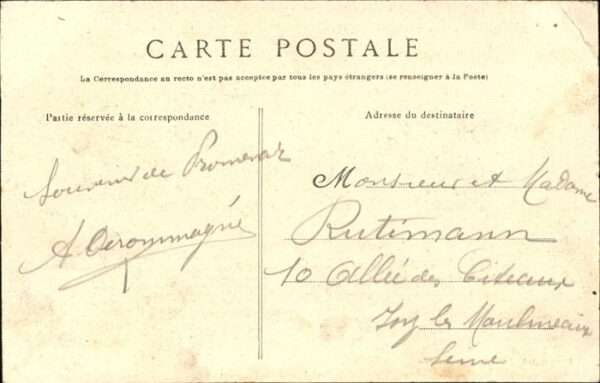 CARTE POSTALE
La Correspondance au recto n'est pas acceptée par tous les pays étrangers (se renseigner à la Poste)
Partie réservée à la correspondance
Adresse du destinataire
Souvenir de Promenade
Monsieur et Madame
Rutimann
10 Allée des Citeaux
Issy les Moulineaux
Seine